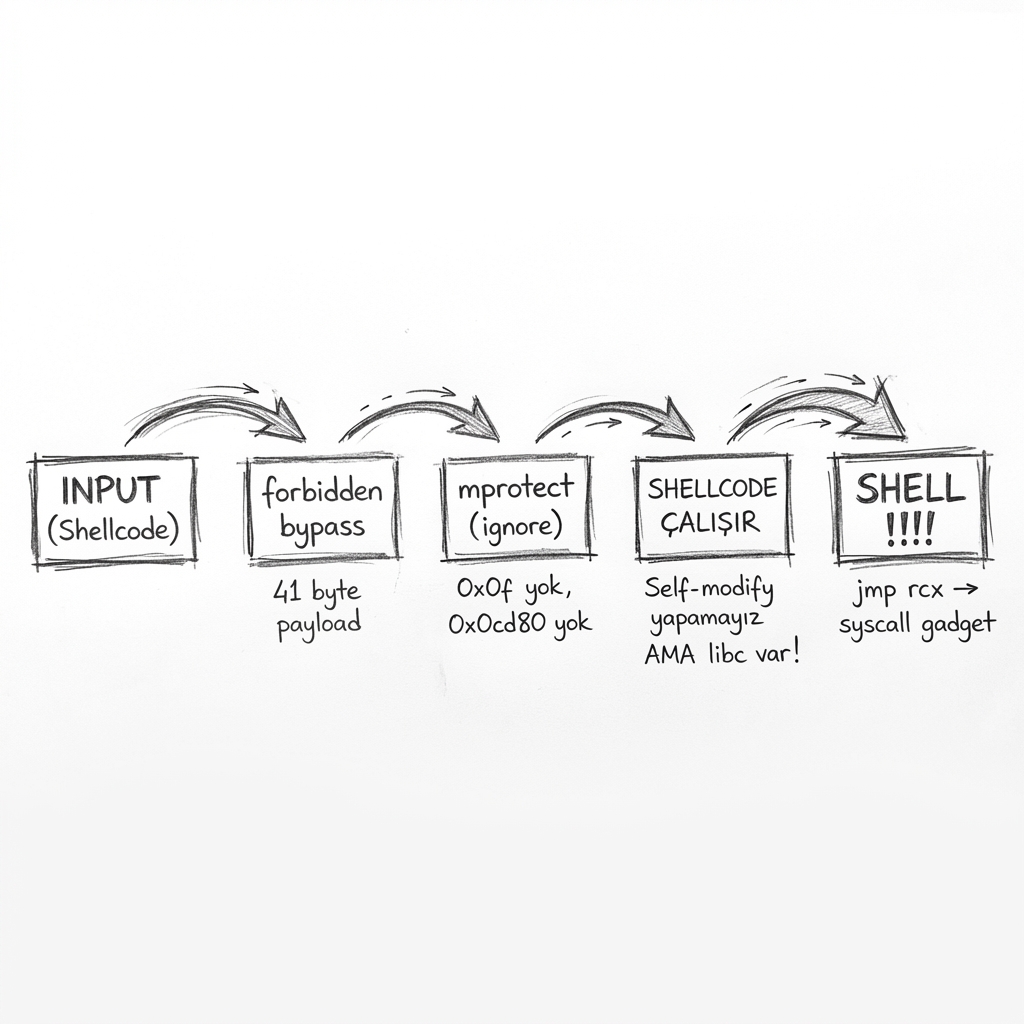 INPUT
(Shellcode)
forbidden
bypass
41 byte
payload
mprotect
(ignore)
0x0f yok,
0x0cd80 yok
SHELLCODE
ÇALIŞIR
Self-modify
yapamayız
AMA libc var!
SHELL
!!!!
jmp rcx →
syscall gadget